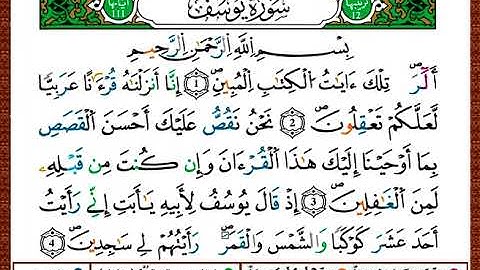 ترتيبها 12 سورة يوسف آياتها 111
بِسْمِ اللَّهِ الرَّحْمَٰنِ الرَّحِيمِ
الٓرۚ تِلْكَ ءَايَٰتُ الْكِتَٰبِ الْمُبِينِ ۝1 إِنَّا أَنزَلْنَٰهُ قُرْءَٰنًا عَرَبِيًّا
لَّعَلَّكُمْ تَعْقِلُونَ ۝2 نَحْنُ نَقُصُّ عَلَيْكَ أَحْسَنَ الْقَصَصِ
بِمَا أَوْحَيْنَا إِلَيْكَ هَٰذَا الْقُرْءَانَ وَإِن كُنتَ مِن قَبْلِهِۦ
لَمِنَ الْغَٰفِلِينَ ۝3 إِذْ قَالَ يُوسُفُ لِأَبِيهِ يَٰأَبَتِ إِنِّي رَأَيْتُ
أَحَدَ عَشَرَ كَوْكَبًا وَالشَّمْسَ وَالْقَمَرَ رَأَيْتُهُمْ لِي سَٰجِدِينَ ۝4